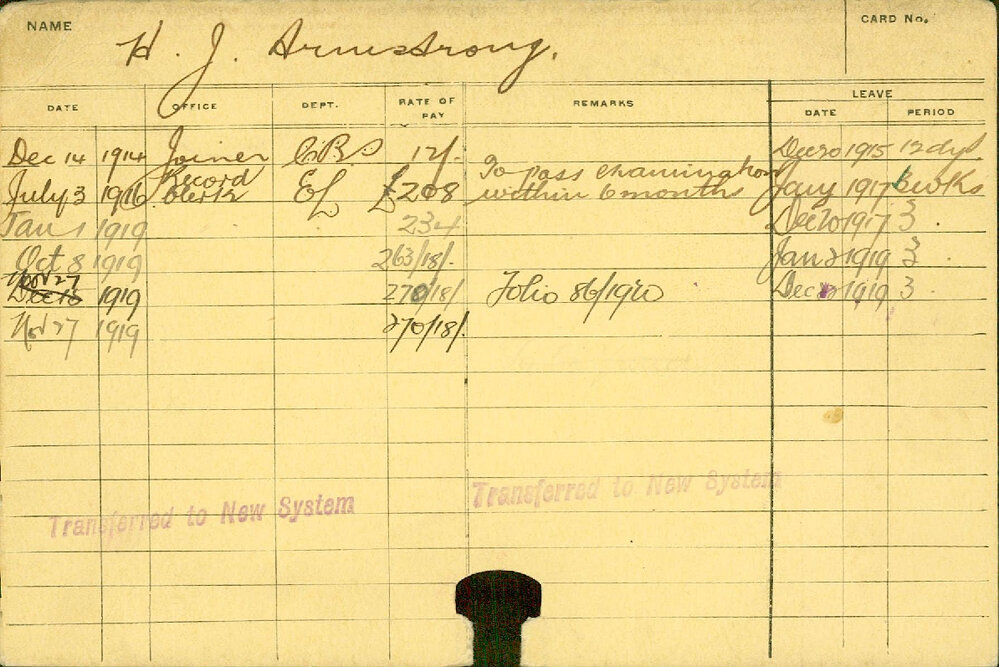 NAME
H. J. Armstrong.
CARD No.
DATE OFFICE DEPT. RATE OF PAY REMARKS LEAVE
DATE PERIOD
Dec 14 1914 Joiner 12/- Dec 20 1915 12 dys.
July 3 1916 Record Clerk EL £208 To pass examination within 6 months Jany 1917 3 wks
Jan 1 1919 234 Dec 20 1917 3
Oct 8 1919 263/18/- Jan 2 1919 3
Nov 27
Dec 18 1919 270/18/ Folio 86/1920 Dec 1919 3
Nov 27 1919 270/18/-
Transferred to New System Transferred to New System